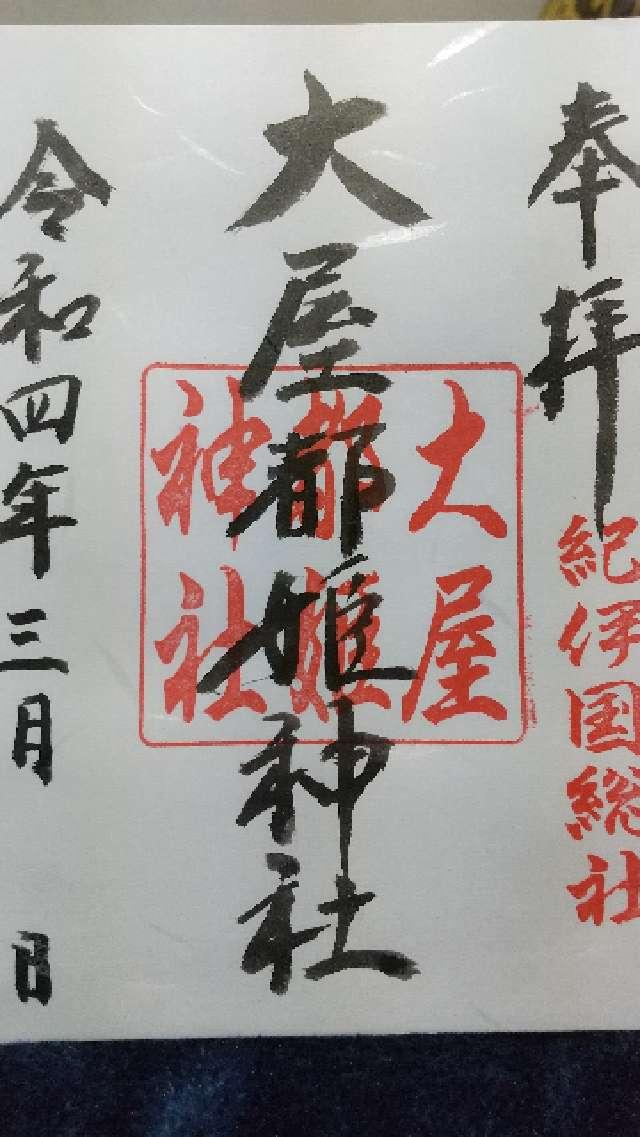 奉拝
紀伊国総社
大屋都姫神社
大屋
都姫
神社
令和四年三月 日